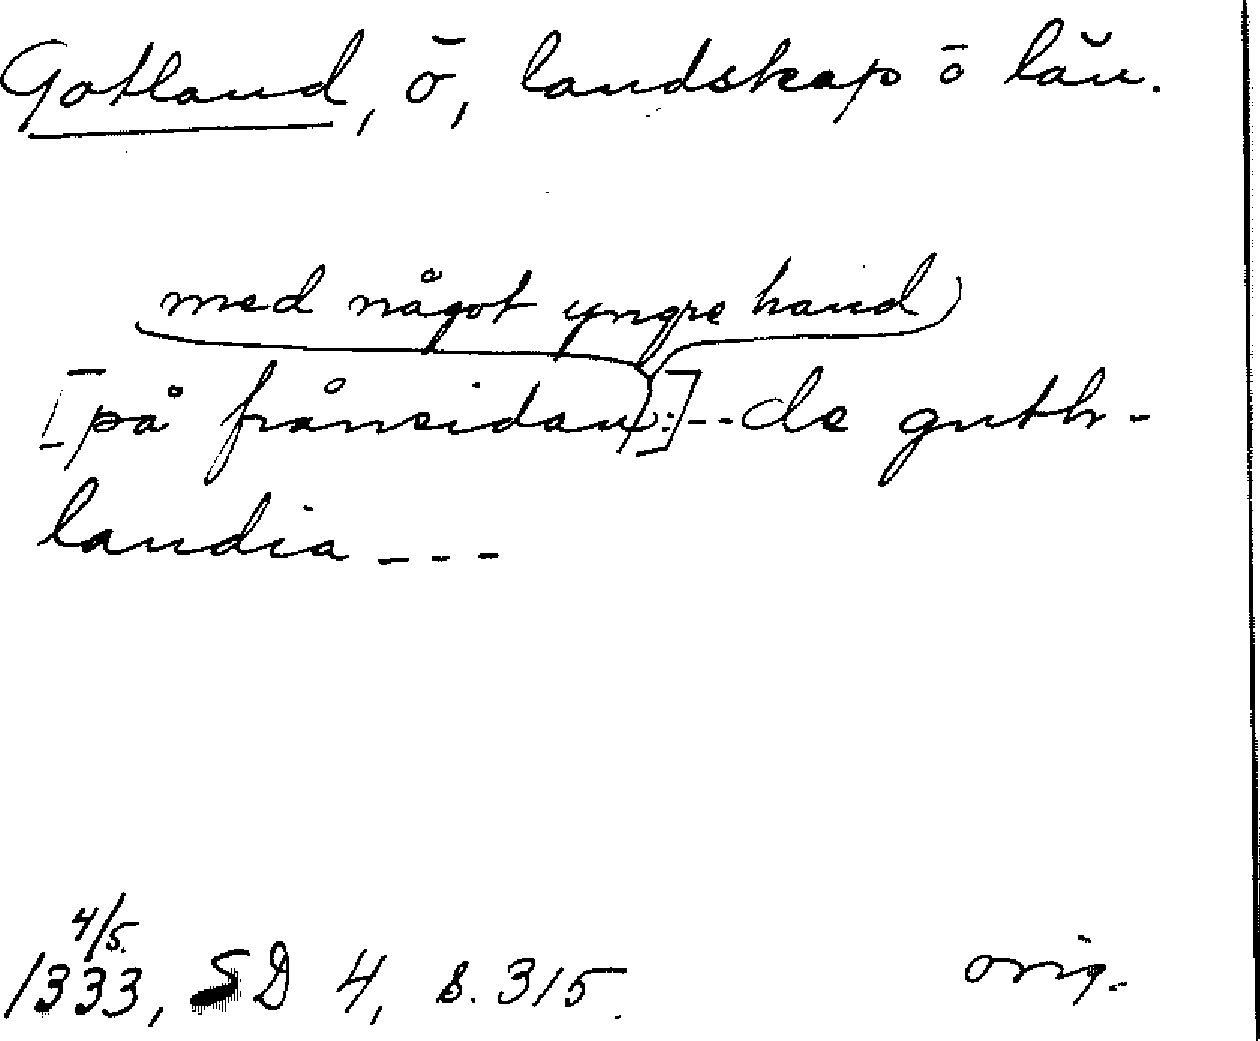 Gotland, ö, landskap o län.
med något yngre hand
[på frånsidan:] -- de guth-
landia ---
4/5.
1333, SD 4, s. 315. orig.